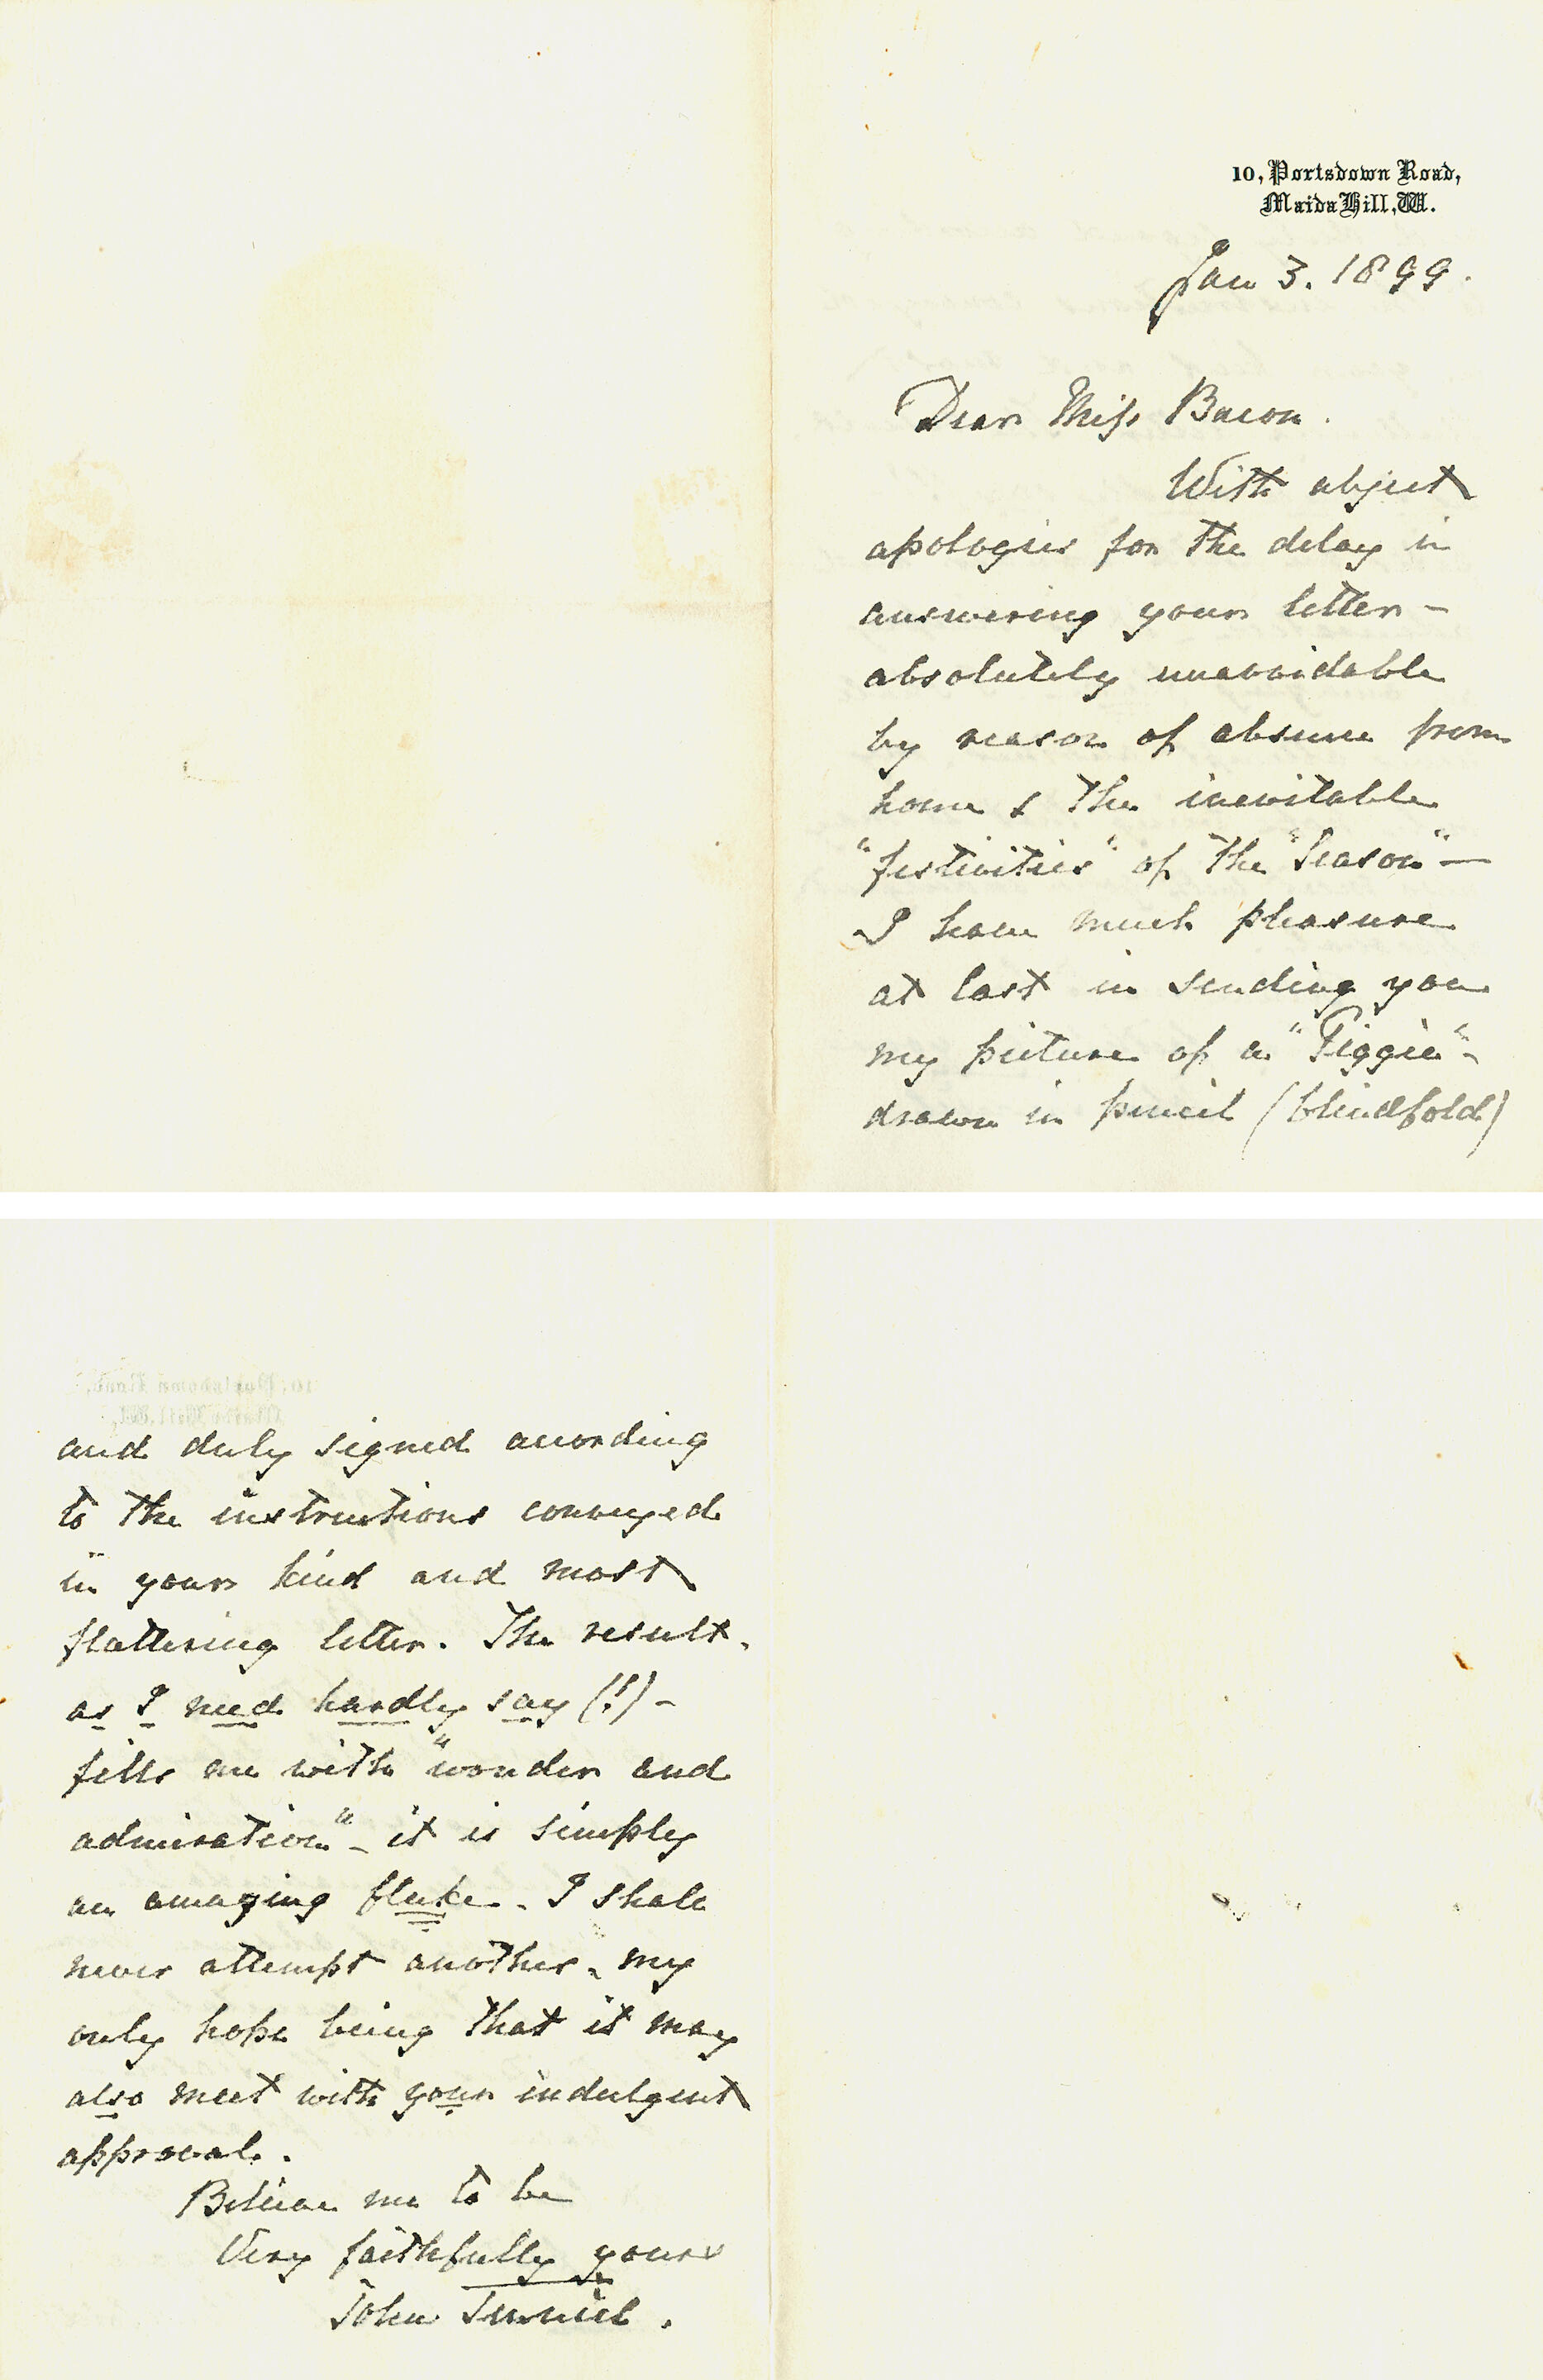 10, Portsdown Road,
Maida Hill, W.
Jan 3. 1899.
Dear Miss Bacon.
With abject
apologies for the delay in
answering your letter –
absolutely unavoidable
by reason of absence from
home & the inevitable
"festivities" of the "Season" —
I have much pleasure
at last in sending you
my picture of a "Piggie" –
drawn in pencil (blindfold)
and duly signed according
to the instructions conveyed
in your kind and most
flattering letter. The result –
as I need hardly say (!) –
fills me with "wonder and
admiration" – it is simply
an amazing fluke. I shall
never attempt another – my
only hope being that it may
also meet with your indulgent
approval.
Believe me to be
Very faithfully yours
John Tenniel.